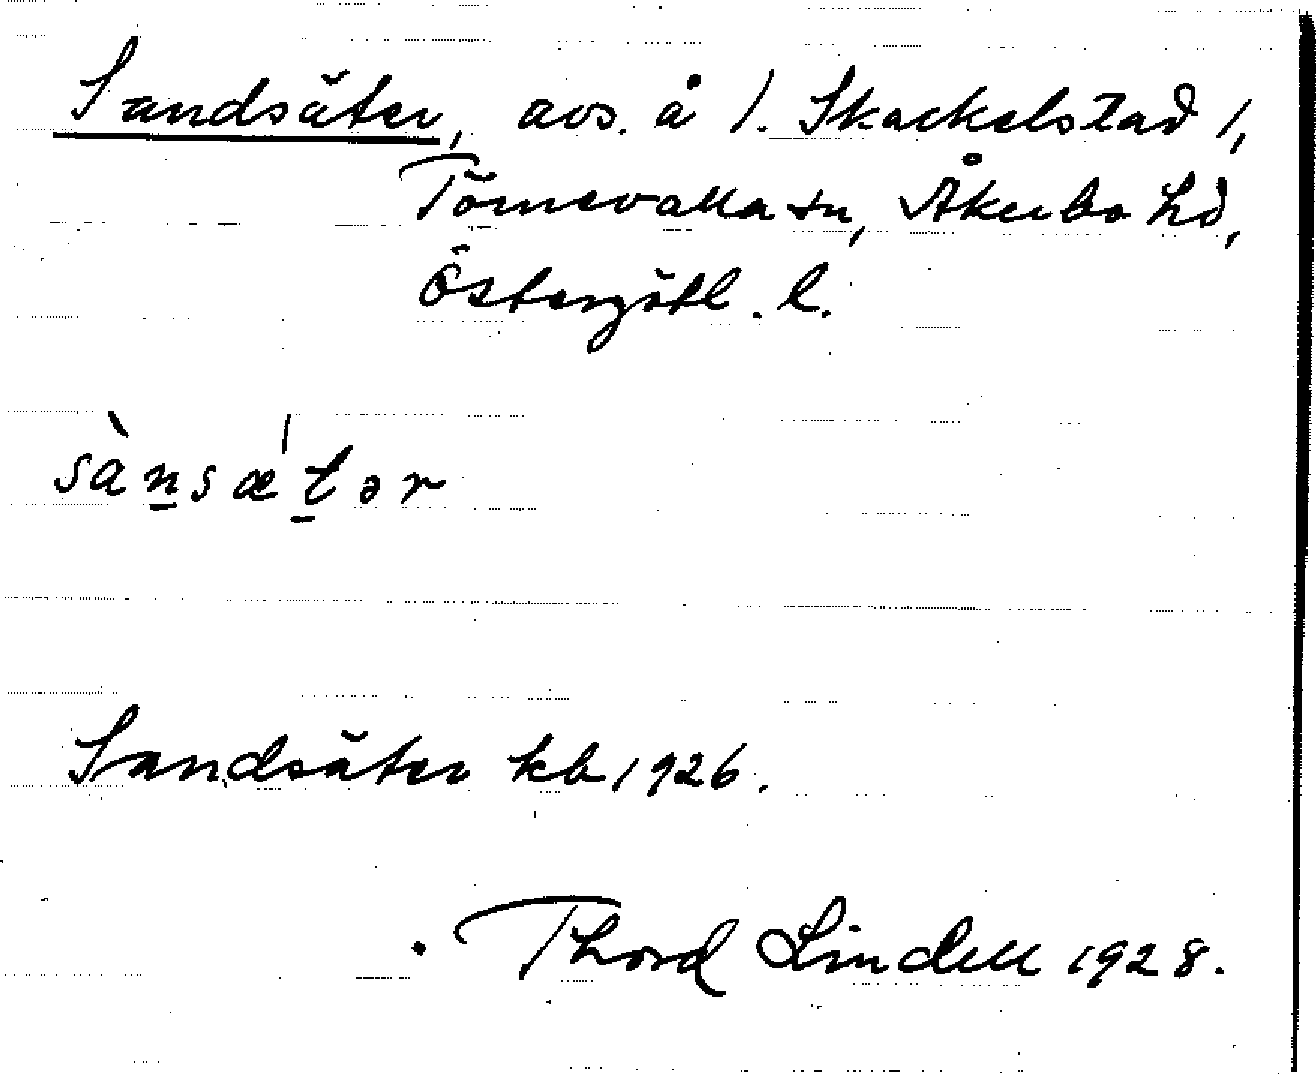 Sandsäter, avs. å 1. Skackelstad 1,
Törnevalla sn, Åkerbo hd,
Östergötl. l.
sàn̠sæ't̠ər
Sandsäter kb 1926.
Thord Lindell 1928.